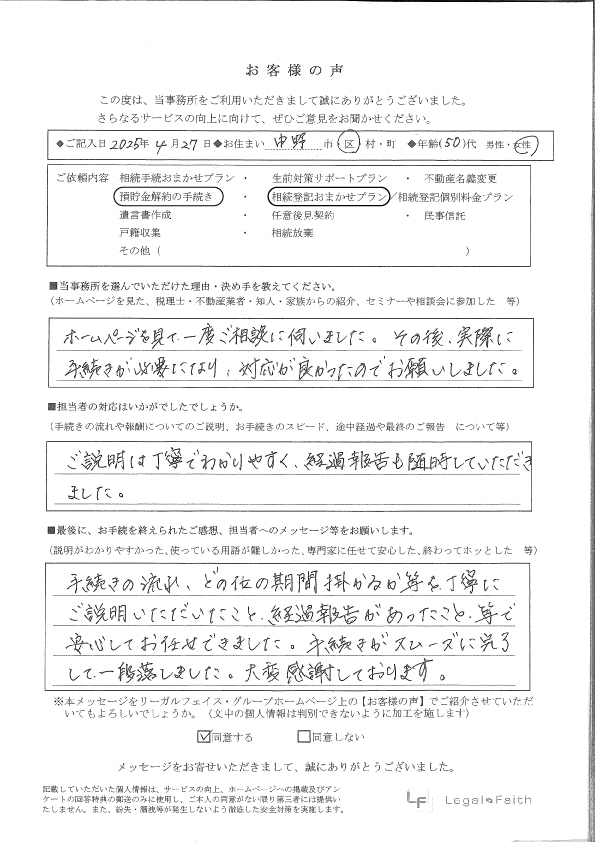 お客様の声
この度は、当事務所をご利用いただきまして誠にありがとうございました。
さらなるサービスの向上に向けて、ぜひご意見をお聞かせください。
◆ご記入日 2025年 4月27日 ◆お住まい 中野 市・区・村・町 ◆年齢(50)代 男性・女性
ご依頼内容 相続手続おまかせプラン ・ 生前対策サポートプラン ・ 不動産名義変更
預貯金解約の手続き ・ 相続登記おまかせプラン/相続登記個別料金プラン
遺言書作成 ・ 任意後見契約 ・ 民事信託
戸籍収集 ・ 相続放棄
その他( )
■当事務所を選んでいただけた理由・決め手を教えてください。
(ホームページを見た、税理士・不動産業者・知人・家族からの紹介、セミナーや相談会に参加した 等)
ホームページを見て、一度ご相談に伺いました。その後、実際に
手続きが必要になり、対応が良かったのでお願いしました。
■担当者の対応はいかがでしたでしょうか。
(手続きの流れや報酬についてのご説明、お手続きのスピード、途中経過や最終のご報告 について等)
ご説明は丁寧でわかりやすく、経過報告も随時していただき
ました。
■最後に、お手続を終えられたご感想、担当者へのメッセージ等をお願いします。
(説明がわかりやすかった、使っている用語が難しかった、専門家に任せて安心した、終わってホッとした 等)
手続きの流れ、どの位の期間掛かるか等を丁寧に
ご説明いただいたこと、経過報告があったこと、等で
安心してお任せできました。手続きがスムーズに完了
して一段落しました。大変感謝しております。
※本メッセージをリーガルフェイス・グループホームページ上の【お客様の声】でご紹介させていただ
いてもよろしいでしょうか。(文中の個人情報は判別できないように加工を施します)
☑同意する □同意しない
メッセージをお寄せいただきまして、誠にありがとうございました。
記載していただいた個人情報は、サービスの向上、ホームページへの掲載及びアン
ケートの回答特典の郵送のみに使用し、ご本人の同意がない限り第三者には提供い
たしません。また、紛失・漏洩等が発生しないよう徹底した安全対策を実施します。
LF Legal Faith